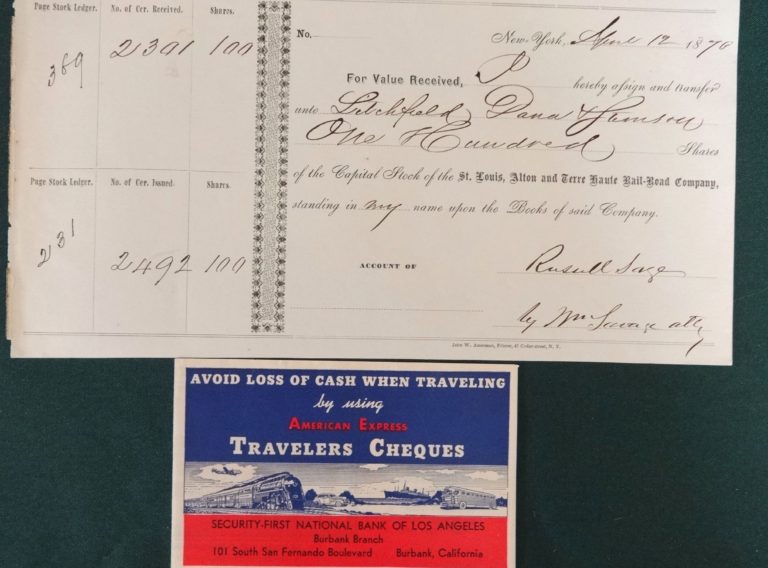 Page Stock Ledger. No. of Cer. Received. Shares.
389 2391 100
Page Stock Ledger. No. of Cer. Issued. Shares.
231 2492 100
No. New-York, April 12 1870
For Value Received, I hereby assign and transfer
unto Litchfield Dana &
One Hundred Shares
of the Capital Stock of the St. Louis, Alton and Terre Haute Rail-Road Company,
standing in my name upon the Books of said Company.
ACCOUNT OF Russell Sage
by Wm Savage atty
John W. Amerman, Printer, 47 Cedar-street, N. Y.
AVOID LOSS OF CASH WHEN TRAVELING
by using
AMERICAN EXPRESS
TRAVELERS CHEQUES
SECURITY-FIRST NATIONAL BANK OF LOS ANGELES
Burbank Branch
101 South San Fernando Boulevard Burbank, California